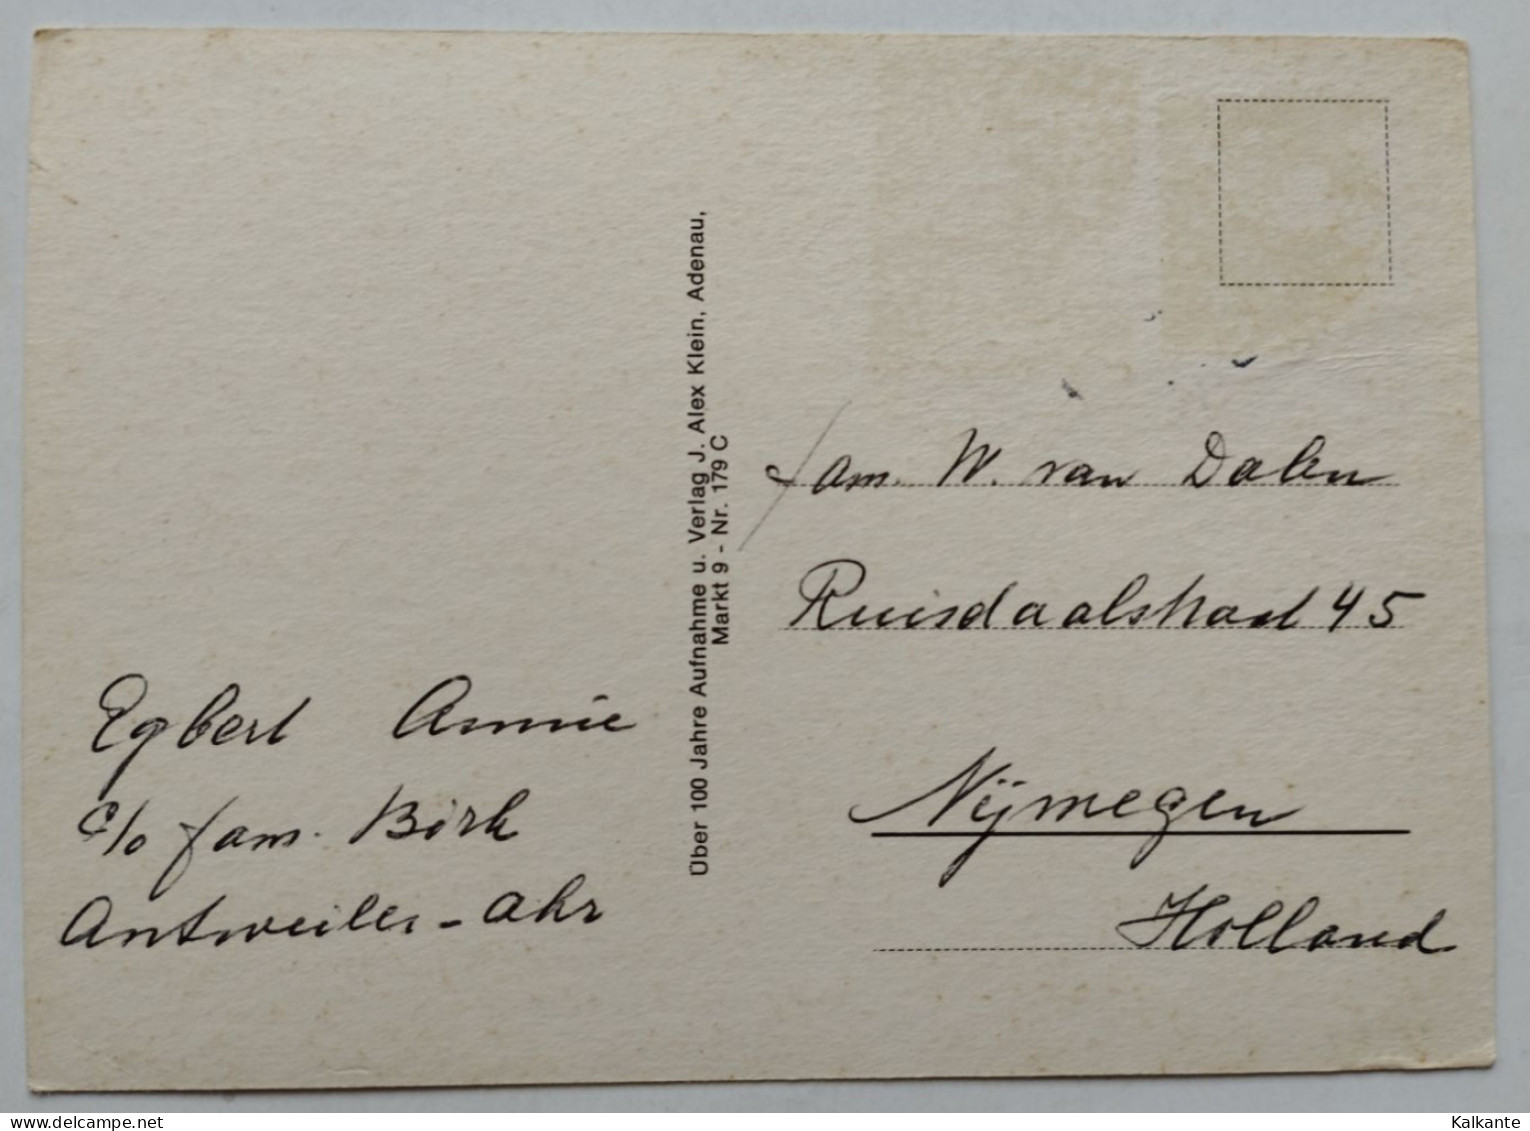 Egbert Annie
c/o fam. Birk
Antweiler-Ahr
Über 100 Jahre Aufnahme u. Verlag J. Alex Klein, Adenau,
Markt 9 - Nr. 179 C
fam. W. van Dalen
Ruisdaalstraat 45
Nijmegen
Holland
delcampe.net
Kalkante